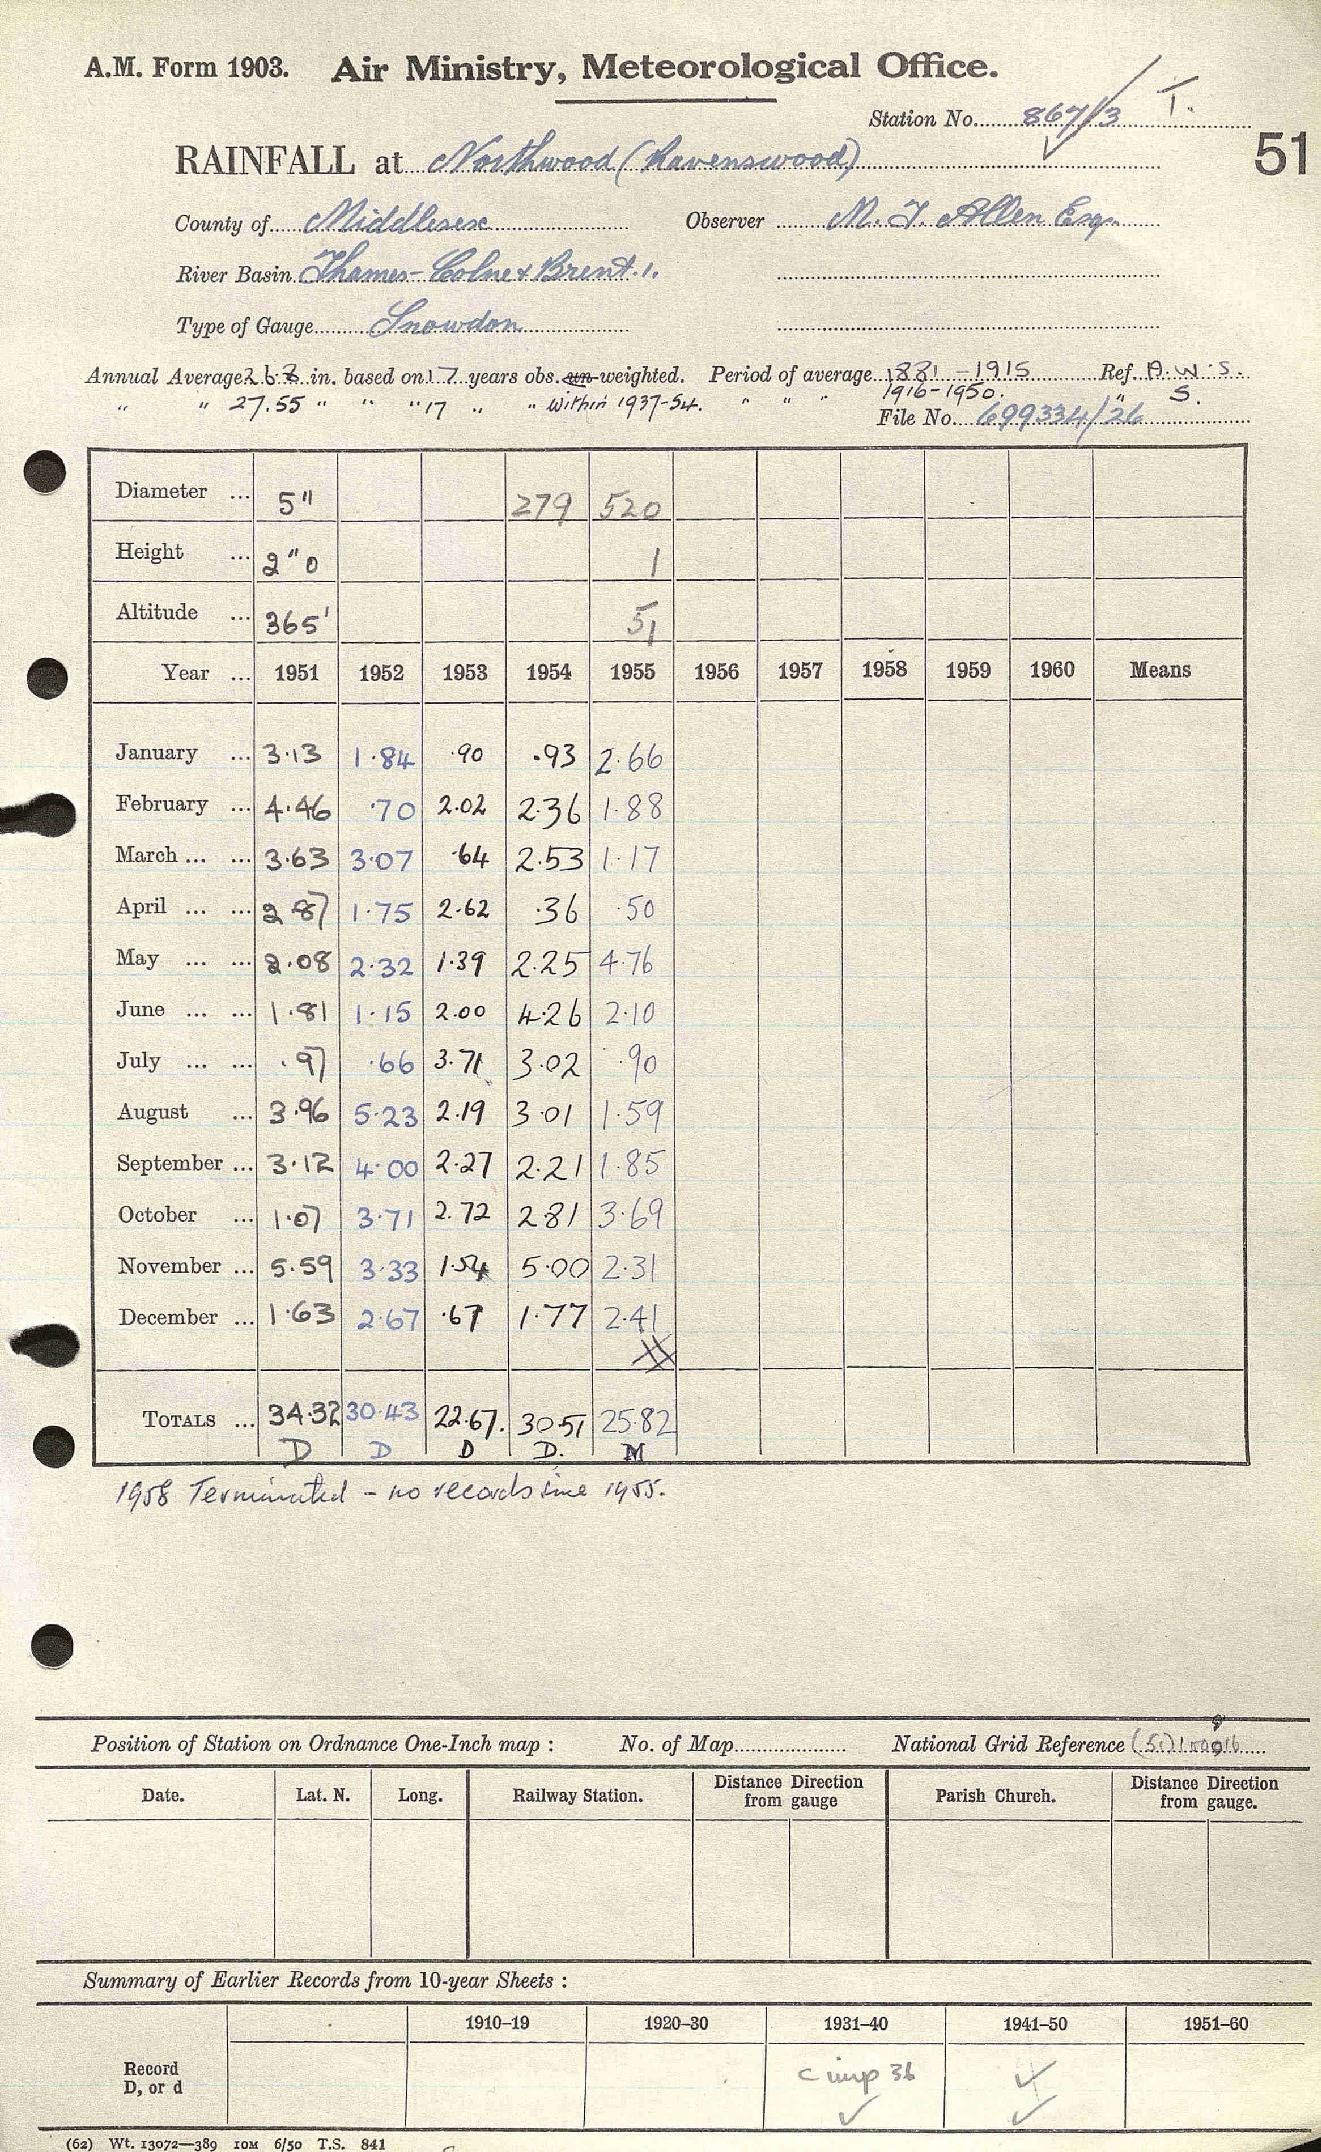 A.M. Form 1903. Air Ministry, Meteorological Office.
Station No. 867/3 T.
51
RAINFALL at Northwood (Ravenswood)
County of Middlesex Observer M. J. Allen Esq.
River Basin Thames - Colne & Brent. 1.
Type of Gauge Snowdon
Annual Average in. based on 17 years obs. un-weighted. Period of average 1881-1915 Ref. A.W.S.
" " 27.55 " " " 17 " " within 1937-54. " " " 1916-1950. " S.
File No. 699334/26
Diameter ... 5" 279 520
Height ... 2"0 1
Altitude ... 365' 51
Year ... 1951 1952 1953 1954 1955 1956 1957 1958 1959 1960 Means
January ... 3.13 1.84 .90 .93 2.66
February ... 4.46 .70 2.02 2.36 1.88
March ... ... 3.63 3.07 .64 2.53 1.17
April ... ... 2.87 1.75 2.62 .36 .50
May ... ... 2.08 2.32 1.39 2.25 4.76
June ... ... 1.81 1.15 2.00 4.26 2.10
July ... ... .97 .66 3.71 3.02 .90
August ... 3.96 5.23 2.19 3.01 1.59
September ... 3.12 4.00 2.27 2.21 1.85
October ... 1.07 3.71 2.72 2.81 3.69
November ... 5.59 3.33 1.54 5.00 2.31
December ... 1.63 2.67 .67 1.77 2.41
TOTALS ... 34.32 30.43 22.67. 30.51 25.82
D D D D. M
1958 Terminated - no records since 1955.
Position of Station on Ordnance One-Inch map : No. of Map National Grid Reference
Date. Lat. N. Long. Railway Station. Distance Direction from gauge Parish Church. Distance Direction from gauge.
Summary of Earlier Records from 10-year Sheets :
1910–19 1920–30 1931–40 1941–50 1951–60
Record
D, or d
c imp 36
(62) Wt. 13072—389 10M 6/50 T.S. 841